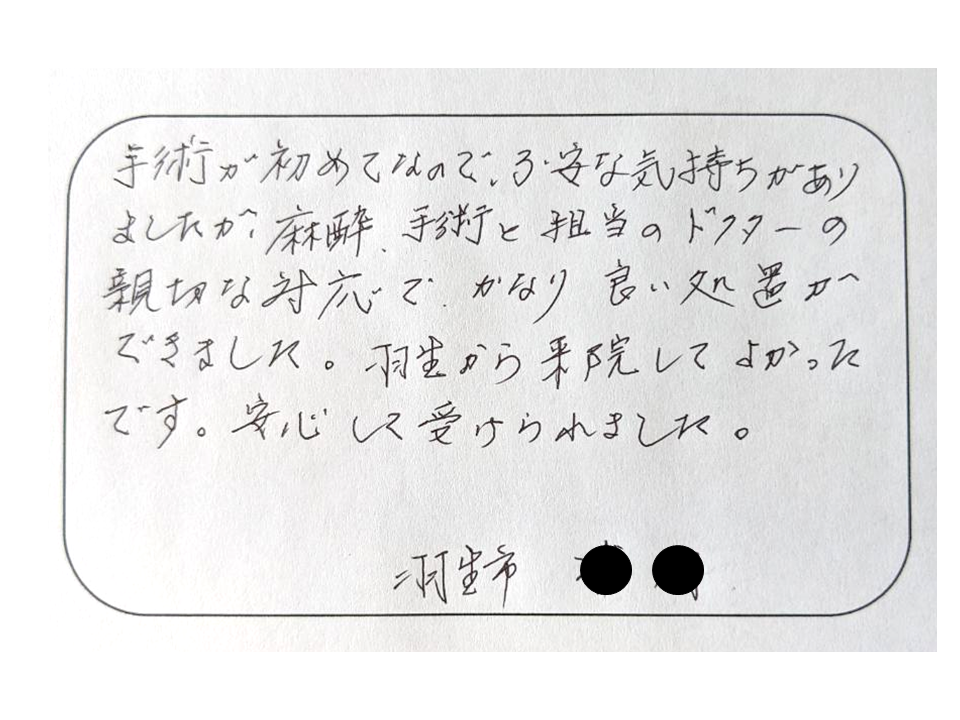 手術が初めてなので、不安な気持ちがあり
ましたが、麻酔、手術と担当のドクターの
親切な対応で、かなり良い処置が
できました。羽生から来院してよかった
です。安心して受けられました。
羽生市